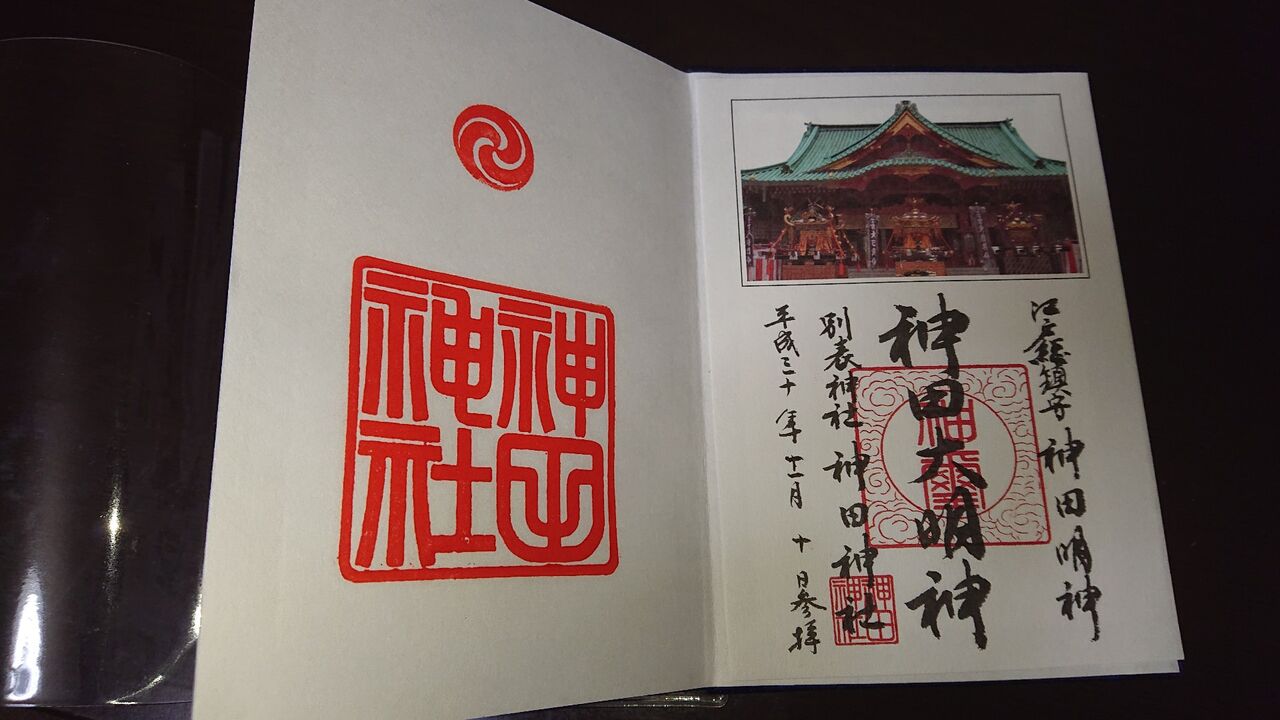 神田
神社
江戸総鎮守 神田明神
神田大明神
別表神社 神田神社
平成三十年十一月十日参拝
神田
神社